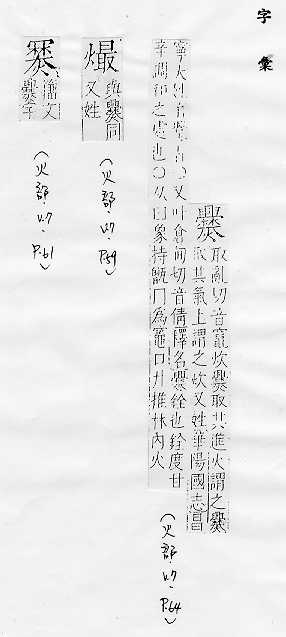 字彙
爨 取亂切音竄炊爨取其進火謂之爨
取其氣上謂之炊又姓華陽國志昌
寧大姓有爨習〇又叶倉甸切音倩釋名爨銓也銓度甘
辛調和之處也〇从𦥑象持甑冂為竈口廾推林內火
(火部.四.P.64)
與爨同
又姓
(火部.四.P.59)
籀文
爨字
(火部.四.P.61)